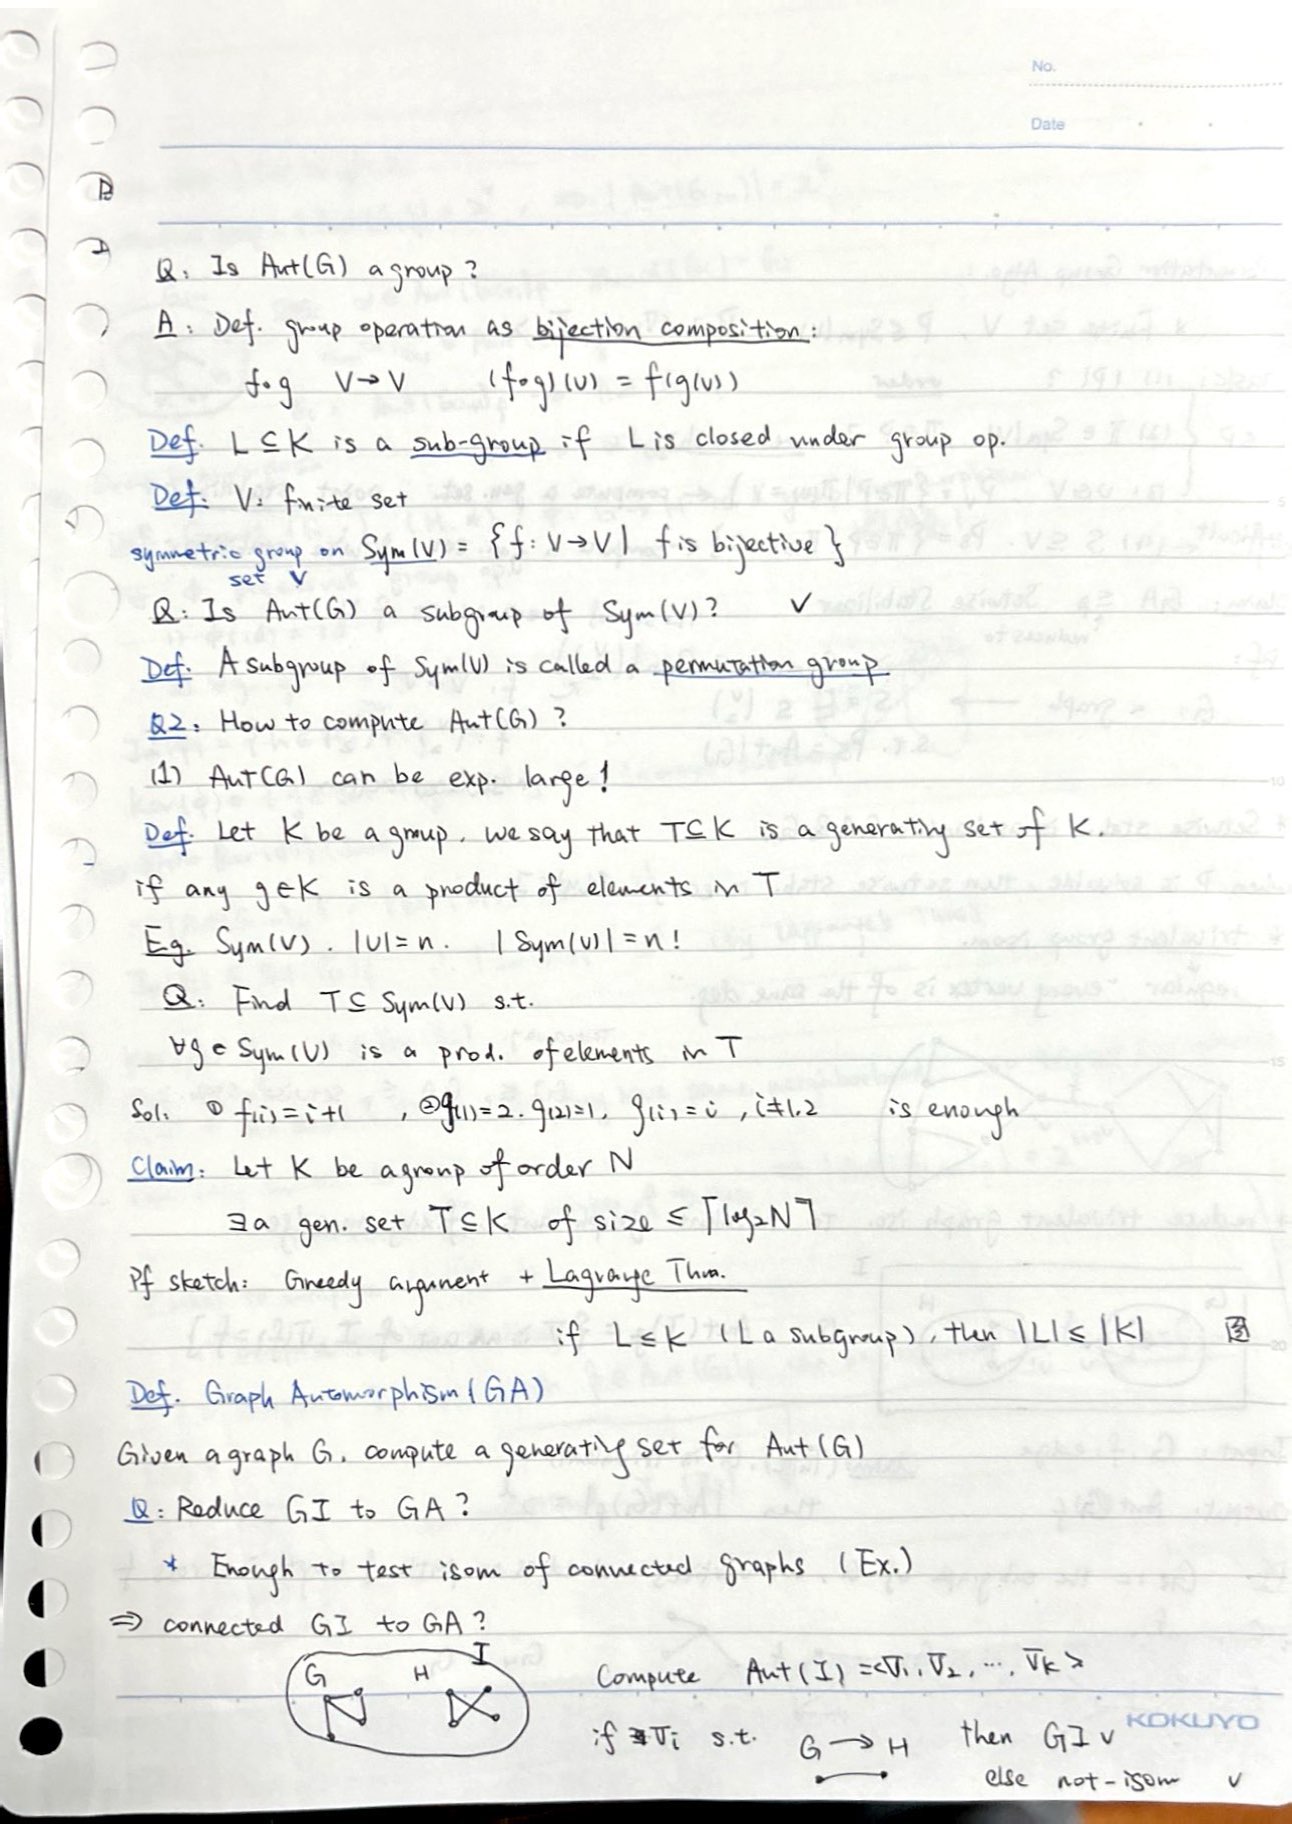 No.
Date
Q: Is Aut(G) a group?
A: Def. group operation as bijection composition:
f∘g V→V (f∘g)(v) = f(g(v))
Def. L ⊆ K is a sub-group if L is closed under group op.
Def. V: finite set
symmetric group on Sym(V) = {f: V→V | f is bijective}
set V
Q: Is Aut(G) a subgroup of Sym(V)? ✓
Def. A subgroup of Sym(V) is called a permutation group
Q2: How to compute Aut(G)?
(1) Aut(G) can be exp. large!
Def. Let K be a group. we say that T⊆K is a generating set of K.
if any g∈K is a product of elements in T
Eg. Sym(V). |V|=n. |Sym(V)|=n!
Q: Find T⊆ Sym(V) s.t.
∀g ∈ Sym(V) is a prod. of elements in T
Sol: ① f(i)=i+1 , ②g(1)=2. g(2)=1, g(i)=i, i≠1.2 is enough
Claim: Let K be a group of order N
∃ a gen. set T⊆K of size ≤ ⌈log₂N⌉
Pf sketch: Greedy argument + Lagrange Thm.
if L≤K (L a subgroup), then |L| ≤ |K|
Def. Graph Automorphism (GA)
Given a graph G. compute a generating set for Aut(G)
Q: Reduce GI to GA?
* Enough to test isom of connected graphs (Ex.)
⇒ connected GI to GA?
G H I
Compute Aut(I) =<σ₁, σ₂, ..., σk>
if ∃σi s.t. G → H then GI ✓
else not-isom ✓
KOKUYO